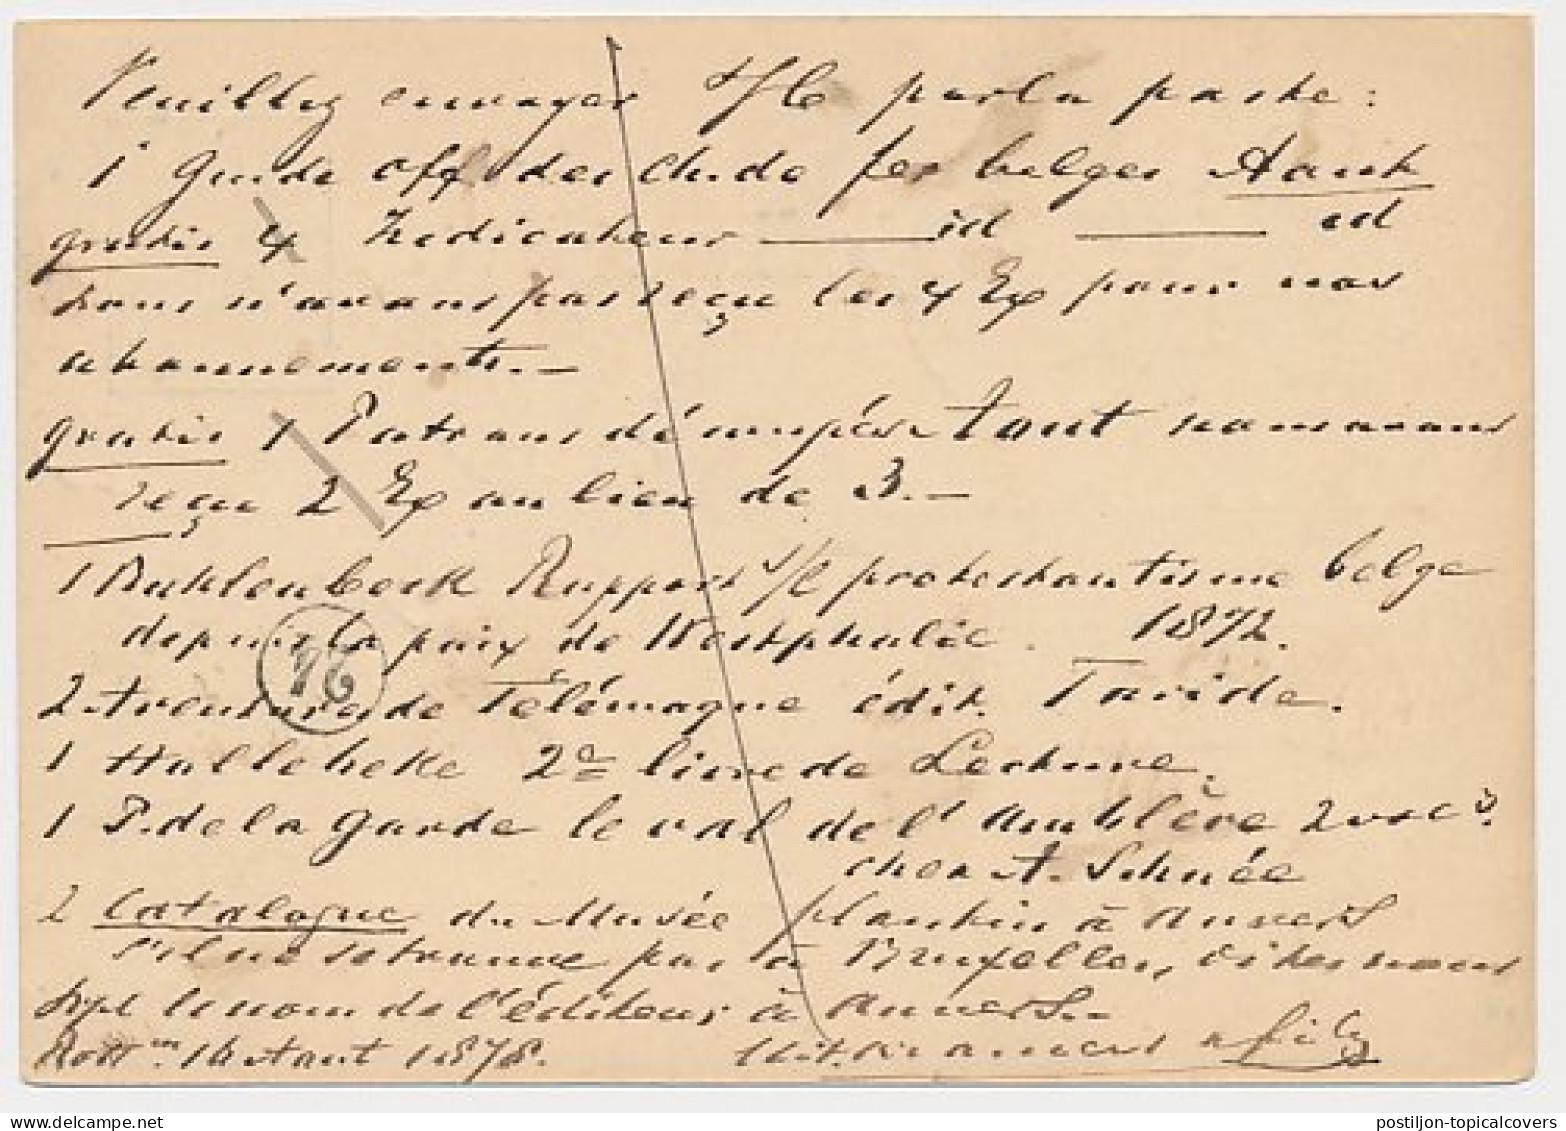 Veuillez envoyer s/C par la poste:
1 Guide off des Ch. de fer belges Aout
gratis 4 Indicateur — id — id
nous n'avons pas reçu les 4 Ex pour nos
abonnements.—
gratis 1 Patrons démysér Tout nous avons
reçu 2 Ex au lieu de 3.—
1 Rahlenbeck Rapport s/l protestantisme belge
depuis la paix de Westphalie. 1872.
2 Aventures de Télémaque édit. Taride.
1 Hallebeke 2e livre de Lecture.
1 P. de la Garde le val de l'Amblève 2 voc s.
chez A. Schnée
2 Catalogue du Musée plantin à Anvers
s'il ne se trouve pas à Bruxelles, dites nous
svpl le nom de l'éditeur à Anvers.—
Rottm 14 Aout 1878. Kramers & fils
92
postiljon-topicalcovers